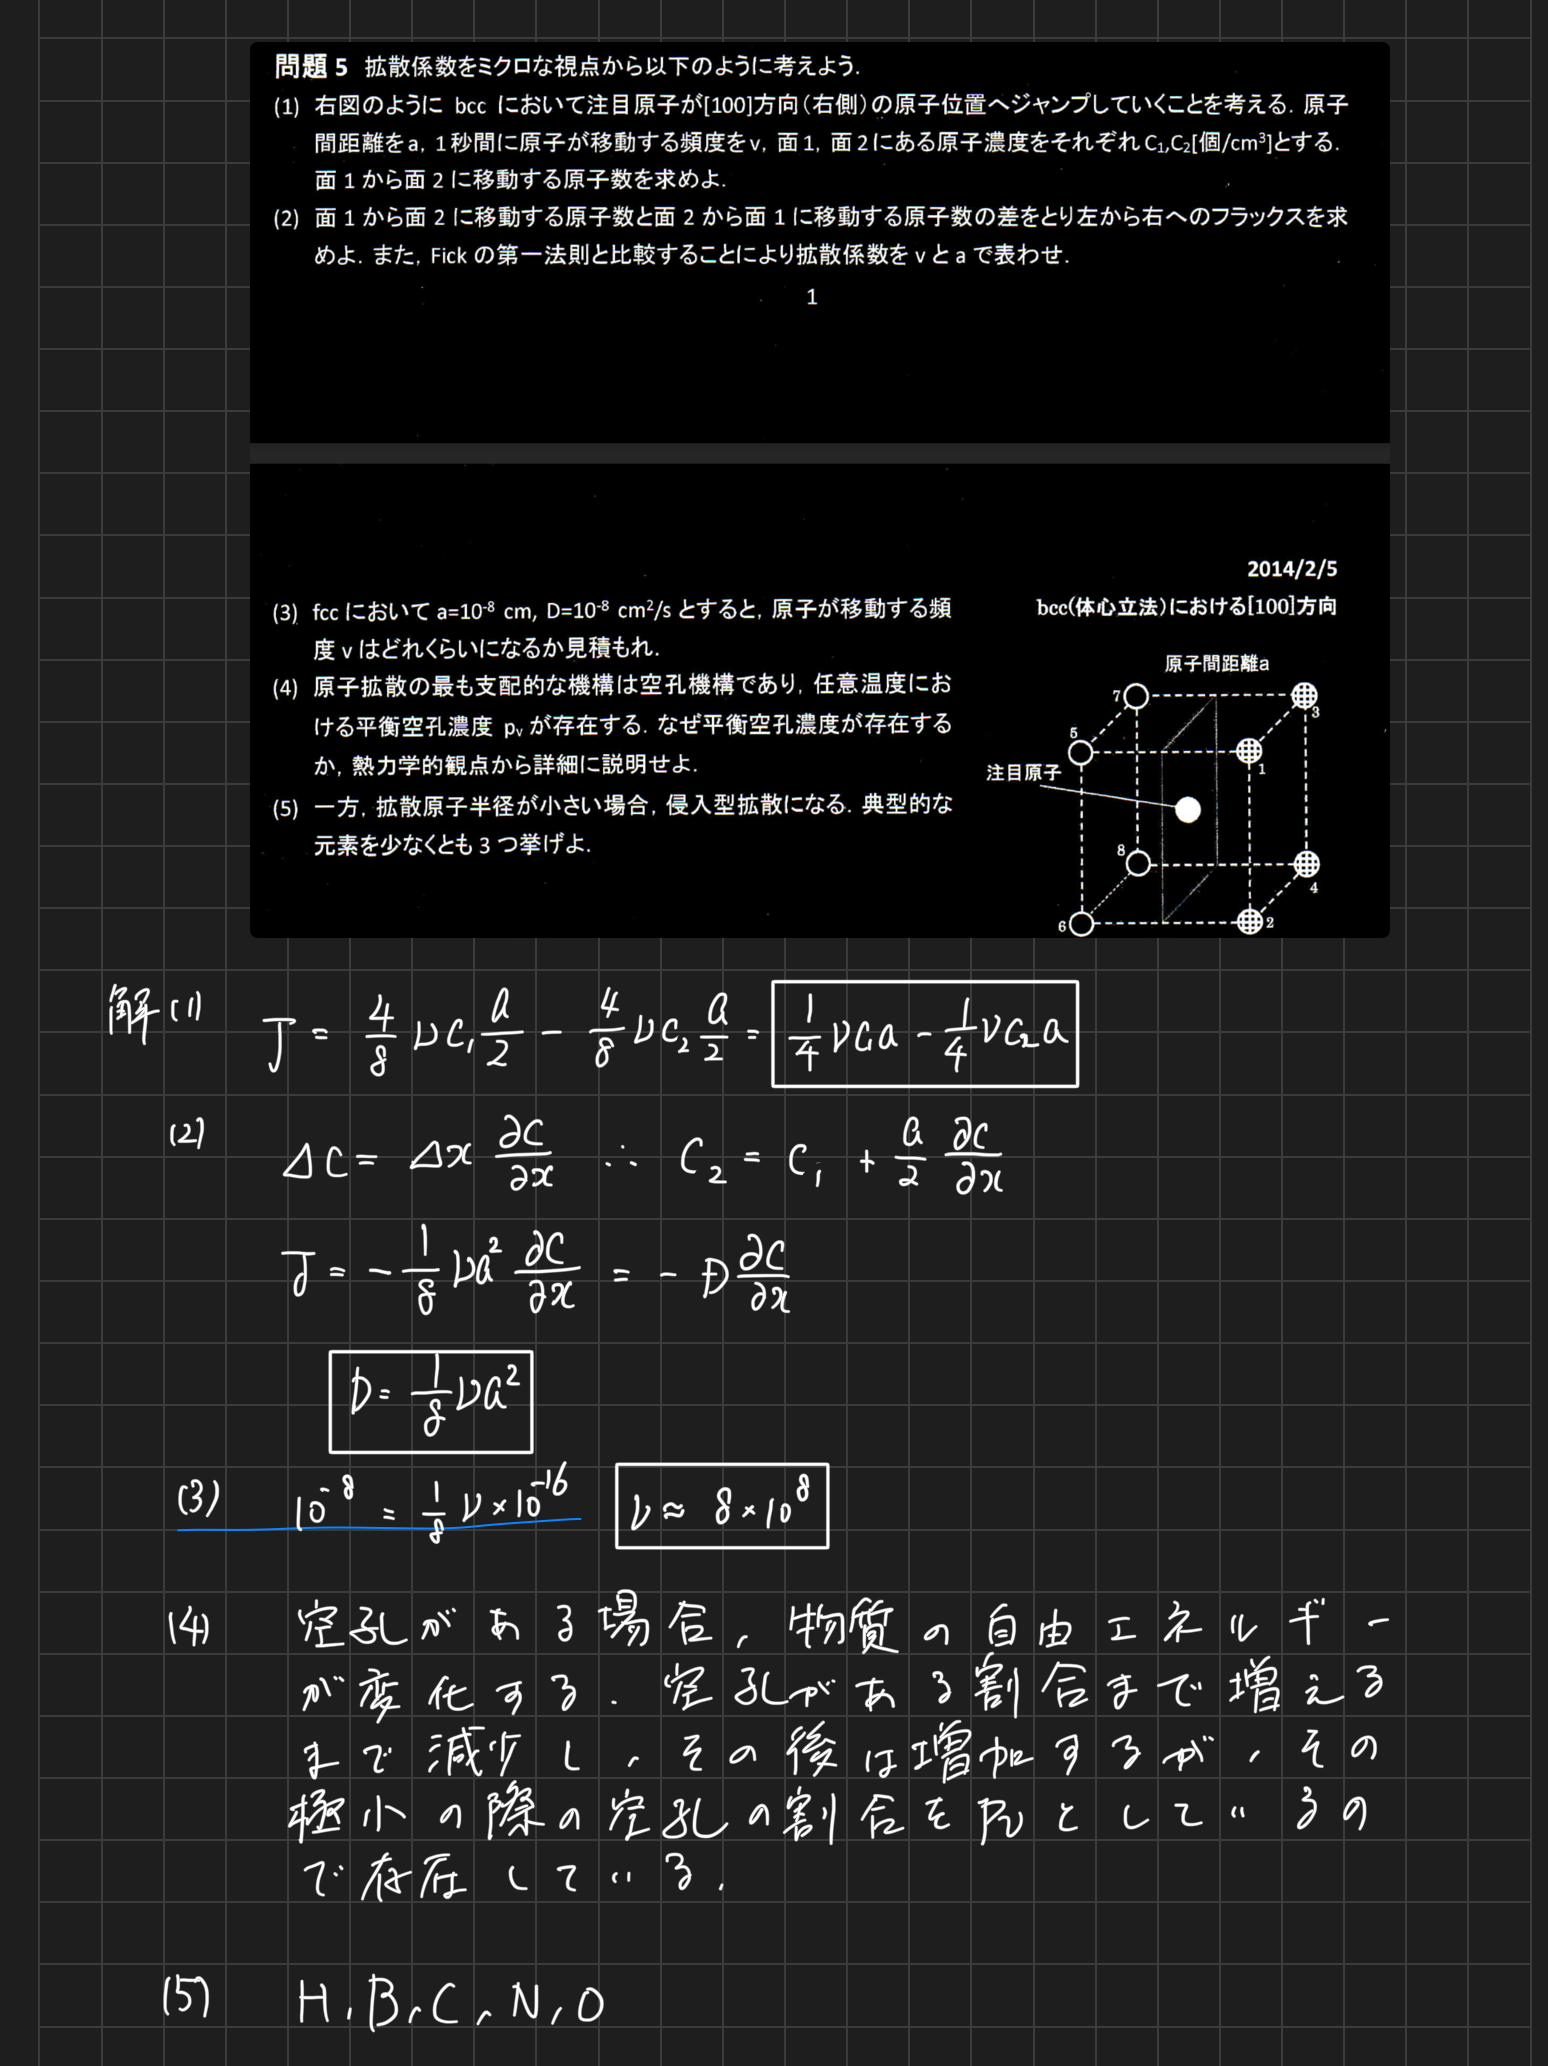 問題 5 拡散係数をミクロな視点から以下のように考えよう.
(1) 右図のように bcc において注目原子が[100]方向（右側）の原子位置へジャンプしていくことを考える. 原子
間距離を a, 1 秒間に原子が移動する頻度を ν, 面 1, 面 2 にある原子濃度をそれぞれ C₁,C₂[個/cm³]とする.
面 1 から面 2 に移動する原子数を求めよ.
(2) 面 1 から面 2 に移動する原子数と面 2 から面 1 に移動する原子数の差をとり左から右へのフラックスを求
めよ. また, Fick の第一法則と比較することにより拡散係数を ν と a で表わせ.
1
2014/2/5
(3) fcc において a=10⁻⁸ cm, D=10⁻⁸ cm²/s とすると, 原子が移動する頻
度 ν はどれくらいになるか見積もれ.
(4) 原子拡散の最も支配的な機構は空孔機構であり, 任意温度にお
ける平衡空孔濃度 pᵥ が存在する. なぜ平衡空孔濃度が存在する
か, 熱力学的観点から詳細に説明せよ.
(5) 一方, 拡散原子半径が小さい場合, 侵入型拡散になる. 典型的な
元素を少なくとも 3 つ挙げよ.
bcc(体心立法)における[100]方向
原子間距離a
7
3
5
1
注目原子
8
4
6
2
解 (1) J = 4/8 νC₁ a/2 − 4/8 νC₂ a/2 = 1/4 νC₁a − 1/4 νC₂a
(2) ΔC = Δx ∂C/∂x ∴ C₂ = C₁ + a/2 ∂C/∂x
J = − 1/8 νa² ∂C/∂x = − D ∂C/∂x
D = 1/8 νa²
(3) 10⁻⁸ = 1/8 ν × 10⁻¹⁶ ν ≈ 8 × 10⁸
(4) 空孔がある場合, 物質の自由エネルギー
が変化する. 空孔がある割合まで増える
まで減少し, その後は増加するが, その
極小の際の空孔の割合を pᵥ としているの
で存在している.
(5) H, B, C, N, O